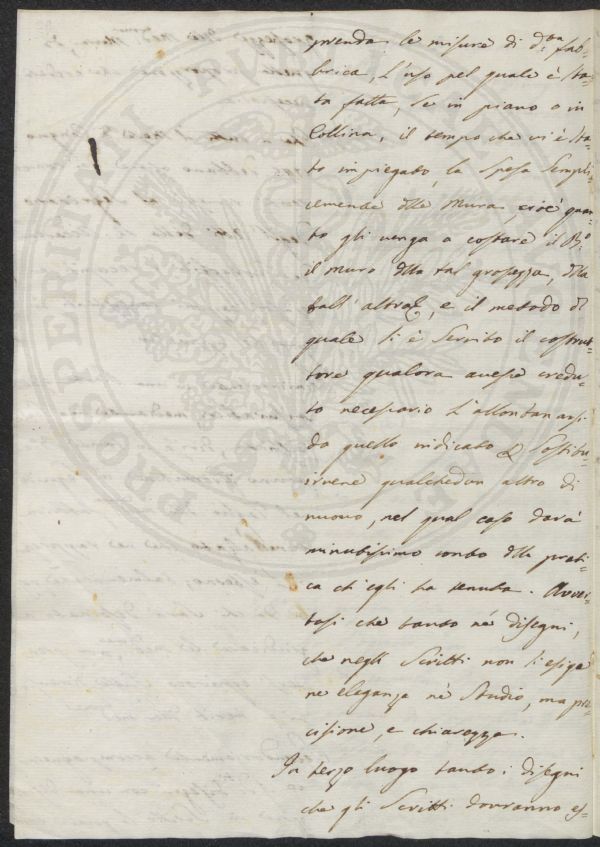 prenda le misure di d.ta fab-
brica, l'uso pel quale è sta-
ta fatta, se in piano o in
Collina, il tempo che vi è sta-
to impiegato, la spesa sempli-
cemente delle Mura, cioè quan-
to gli venga a costare il
il muro della tal grossezza, della
tall' altra, e il metodo di
quale si è servito il costrut-
tore qualora avesse credu-
to necessario l'allontanarsi
da quello indicato e sostitu-
irvene qualchedun altro di
nuovo, nel qual caso darà
minutissimo conto della prati-
ca ch'egli ha tenuta. Avver-
tasi che tanto né disegni,
che negli Scritti non si esige
ne eleganza nè Studio, ma pre-
cisione, e chiarezza.
In terzo luogo tanto i disegni
che gli Scritti dovranno es-
PROSPERITATI PUBLICAE